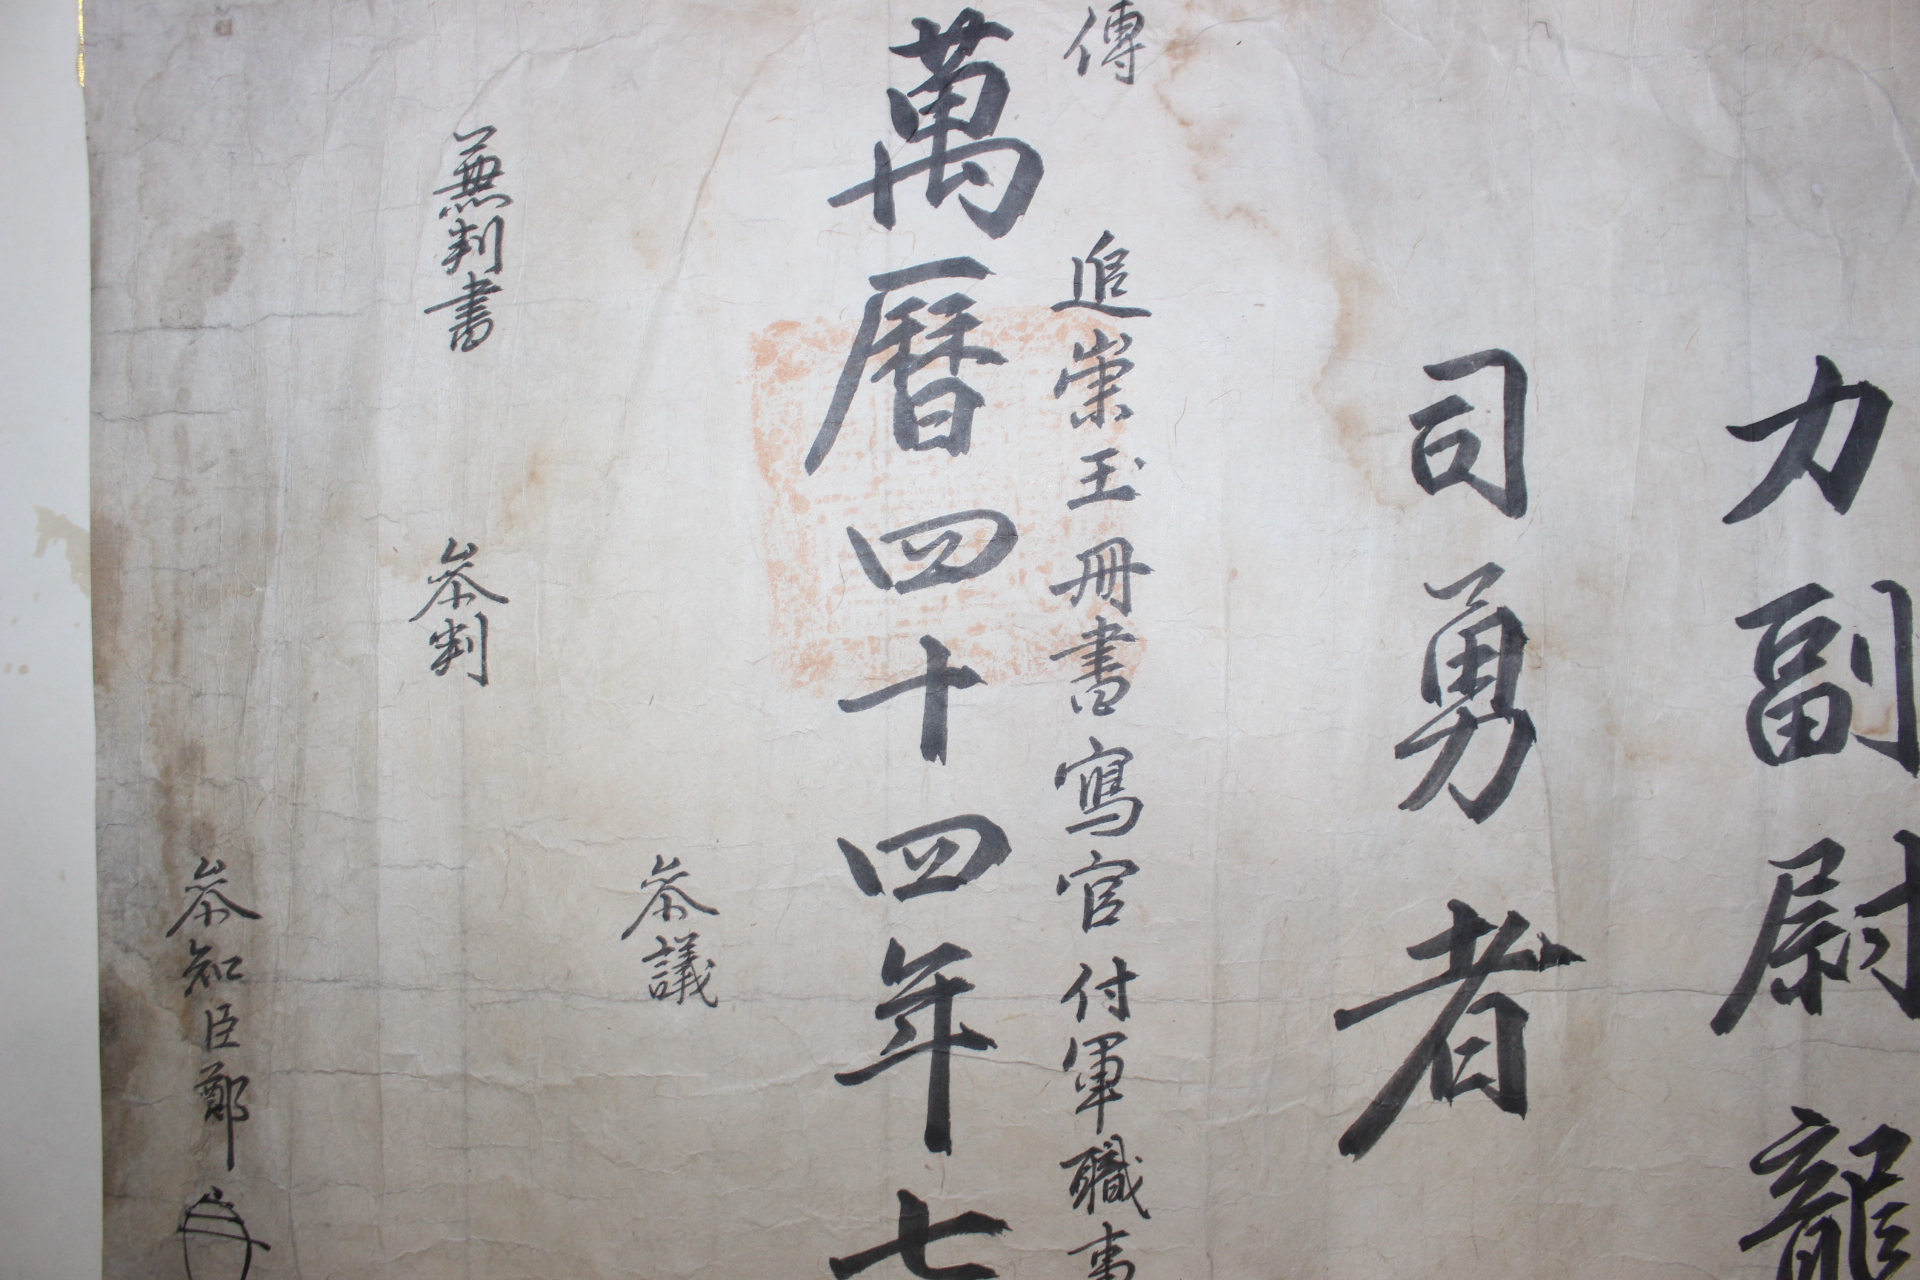 力副尉龍
司勇者
傳
追崇玉冊書寫官付軍職事
萬曆四十四年七
參議
兼判書
參判
參知臣鄭